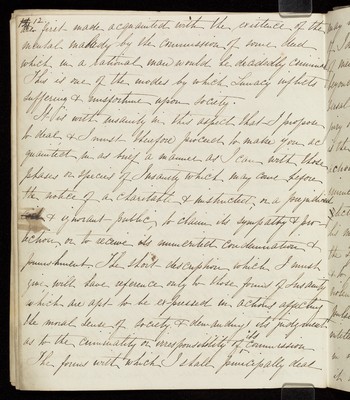 12.
are first made acquainted with the existence of the
mental malady by the commission of some deed
which in a rational man would be decidedly criminal
This is one of the modes by which Lunacy inflicts
suffering & misfortune upon Society.
It is with insanity in this aspect that I propose
to deal & I must therefore proceed to make you ac
quainted in as brief a manner as I can with those
phases or species of Insanity which may come before
the notice of a charitable & instructed, or a prejudiced
& ignorant public, to claim its sympathy & pro-
tection, or to receive its unmerited condemnation &
punishment. The short description which I must
give will have reference only to those forms of Insanity
which are apt to be expressed in actions affecting
the moral sense of Society & demanding its judgment
as to the criminality or irresponsibility of the commission
The forms with which I shall principally deal